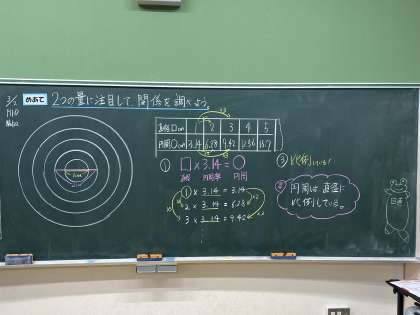 3/2
めあて 2つの量に注目して、関係を調べよう。
直径□cm 2 3 4 5
円周○cm 3.14 6.28 9.42 12.56 15.7
① □×3.14=○
直径 円周率 円周
1×3.14=3.14
2×3.14=6.28
3×3.14=9.42
③ 比例している!
② 円周は直径に
比例している。
日直